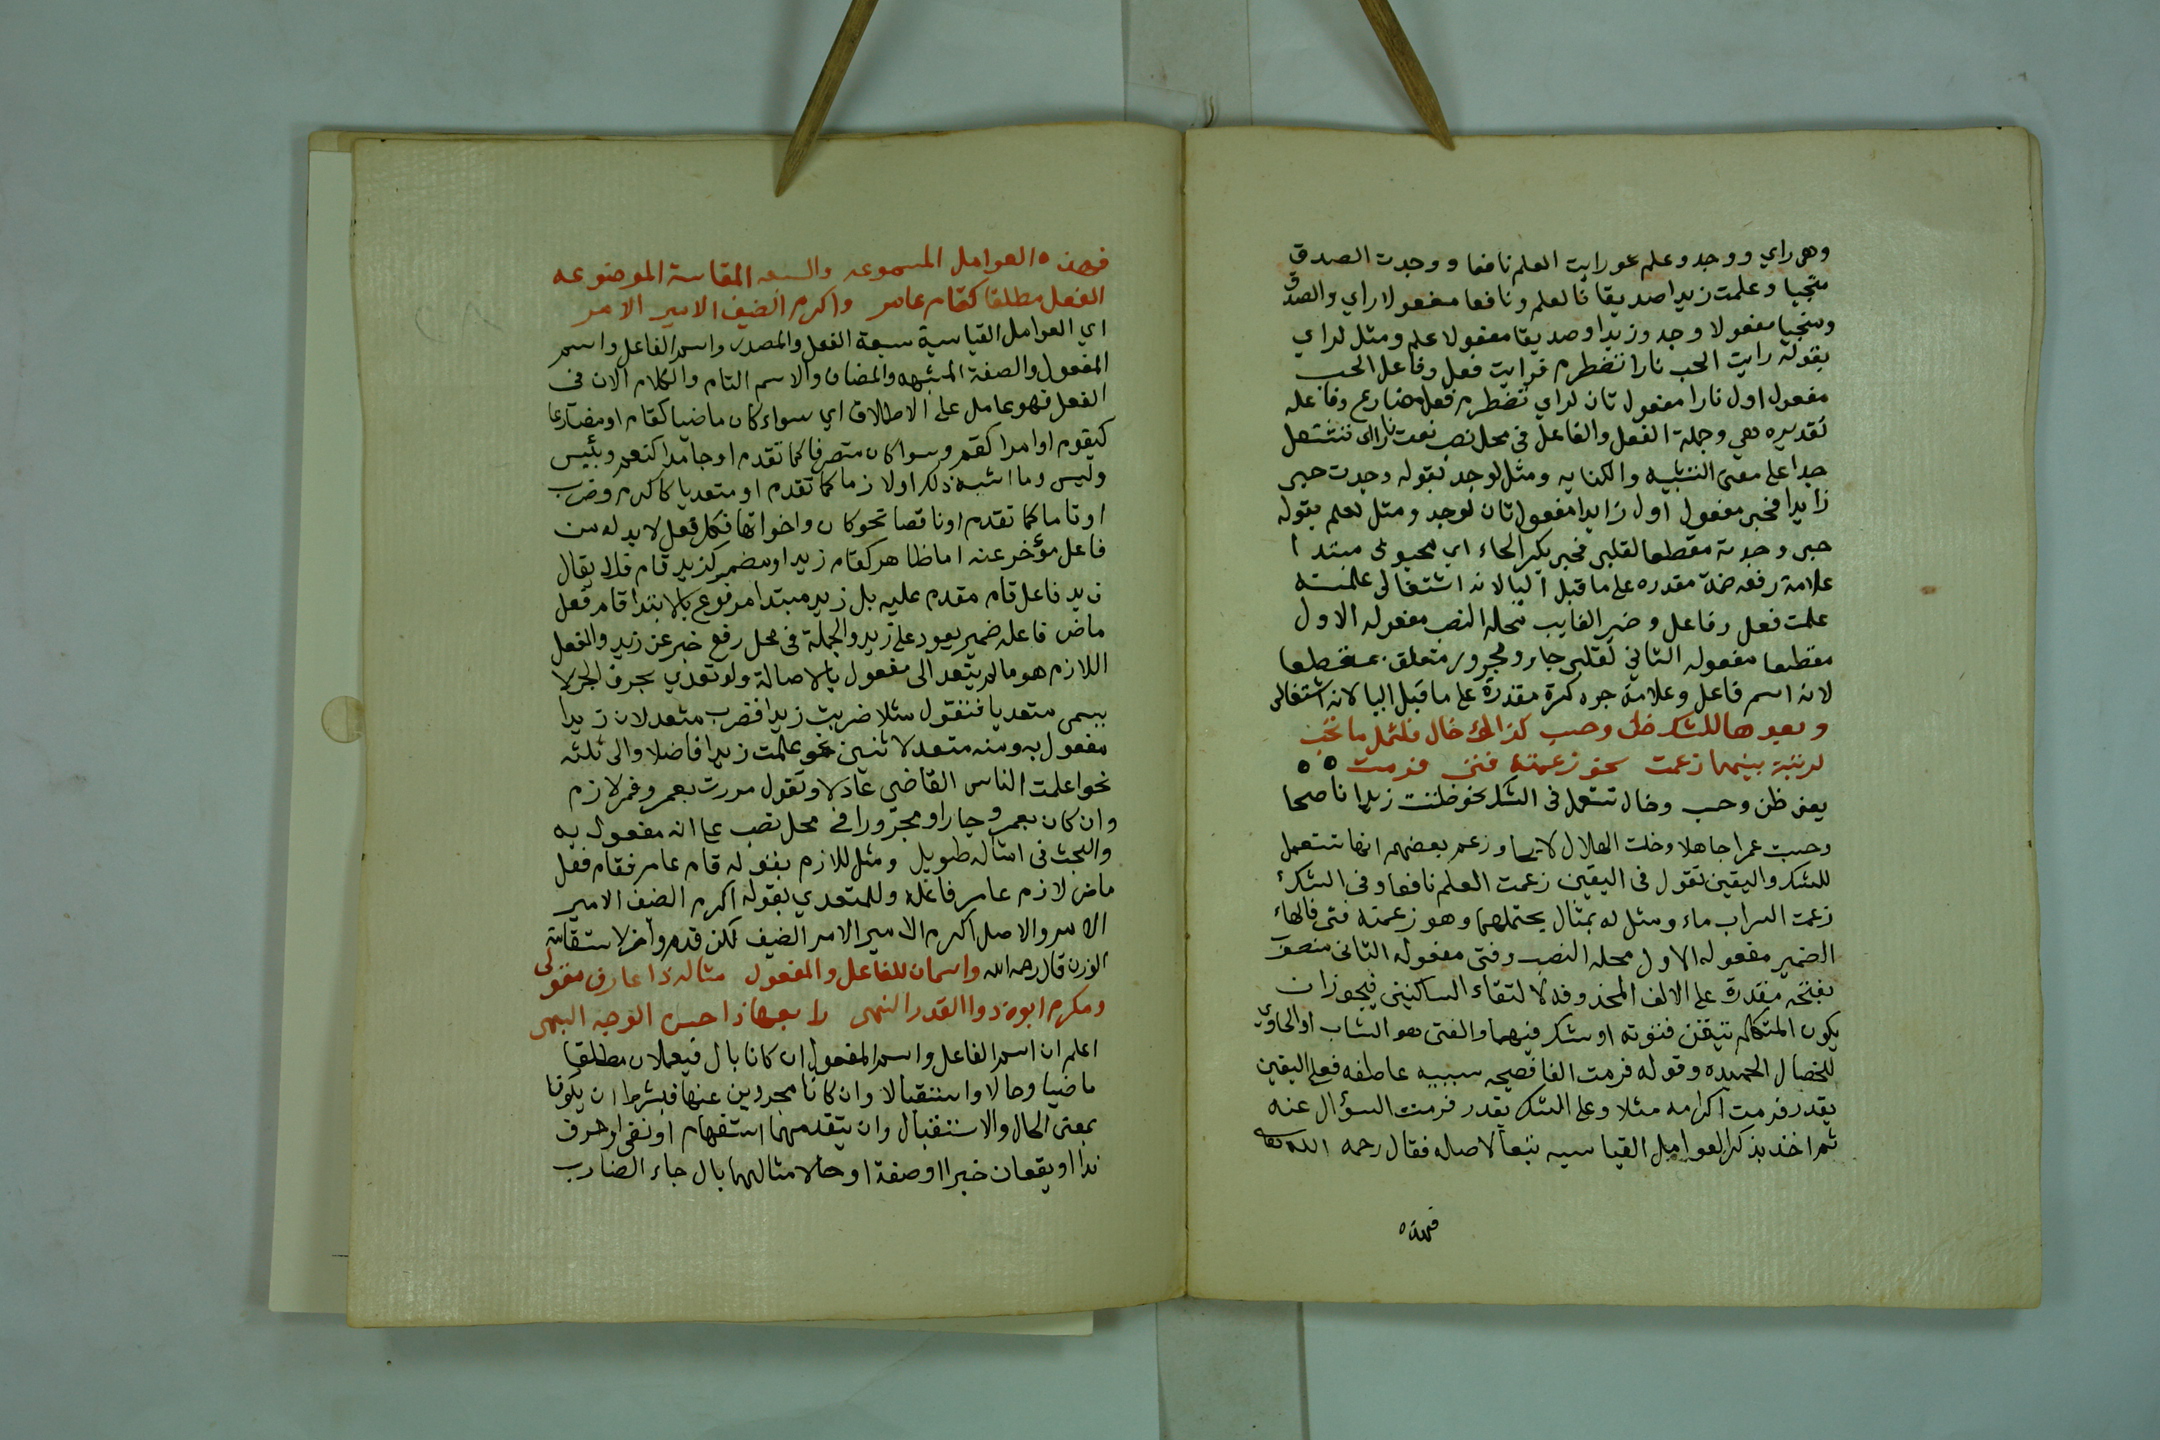 وهي راي ووجد وعلم نحو رايت العلم نافعا ووجدت الصدق
منجيا وعلمت زيدا صديقا فالعلم ونافعا مفعولا راي والصدق
ومنجيا مفعولا وجد وزيدا وصديقا مفعولا علم ومثل لراي
بقوله رايت الحب نارا تضطرم فرايت فعل وفاعل الحب
مفعول اول نارا مفعول ثان لراي تضطرم فعل مضارع وفاعله
تقديره هي وجملة الفعل والفاعل في محل نصب نعت نارا اي تشتعل
جدا على معنى التشبيه والكنايه ومثل لوجد بقوله وجدت حبي
زايدا فحبي مفعول اول زايدا مفعول ثان لوجد ومثل لعلم بقوله
حبي وجدته مقطعا لقلبي فحبي بكسر الحاء اي محبوبي مبتدا
علامة رفعه ضمة مقدره على ما قبل اليا لانه اشتغالي علمته
علمت فعل وفاعل وضمير الغايب محله النصب مفعوله الاول
مقطعا مفعوله الثاني لقلبي جار ومجرور متعلق بمقطعا
لانه اسم فاعل وعلامة جره كسرة مقدرة على ما قبل اليا لانه اشتغالى
وبعدها للشك ظن وحسب كذالك خال فلتمل ما تحب
لرتبة بينهما زعمت نحو زعمته فتى فرمت
يعني ظن وحسب وخال تستعمل في الشك نحو ظننت زيدا ناصحا
وحسبت عمرا جاهلا وخلت الهلال وزعم بعضهم انها تستعمل
للشك واليقين تقول في اليقين زعمت العلم نافعا وفي الشك
زعمت السراب ماء ومثل له بمثال يحتملهما وهو زعمته فتى فالهاء
الضمير مفعوله الاول محله النصب وفتى مفعوله الثانى منصوب
بفتحه مقدرة على الالف المحذوفه لالتقاء الساكنين فيجوز ان
يكون المتكلم تيقن فتوته او شك فيهما والفتى هو الشاب او الحاوي
للخصال الحميده وقوله فرمت الفا فصيحه سببيه عاطفه فعلى اليقين
يقدر فرمت اكرامه مثلا وعلى الشك يقدر فرمت السؤال عنه
ثم اخذ بذكر العوامل القياسيه تبعا لاصله فقال رحمه الله تعالى
فهذه
فهذه العوامل المسموعه والسبعه المقاسة الموضوعه
الفعل مطلقا كقام عامر واكرم الضيف الامير الامر
اي العوامل القياسية سبعة الفعل والمصدر واسم الفاعل واسم
المفعول والصفة المشبهه والمضاف والاسم التام والكلام الان في
الفعل فهو عامل على الاطلاق اي سواء كان ماضيا كقام او مضارعا
كيقوم او امرا كقم وسوا كان متصرفا كما تقدم او جامدا كنعم وبئس
وليس وما اشبه ذلك او لازما كما تقدم او متعديا كاكرم وضرب
او تاما كما تقدم او ناقصا نحو كان واخواتها فكل فعل لا بد له من
فاعل مؤخر عنه اما ظاهر كقام زيد او مضمر كزيد قام فلا يقال
زيد فاعل قام مقدم عليه بل زيد مبتدا مرفوع بالابتدا قام فعل
ماض فاعله ضمير يعود على زيد والجملة في محل رفع خبر عن زيد والفعل
اللازم هو ما لم يتعد الى مفعول بالاصالة ولو تعدي بحرف الجر لا
يسمى متعديا فتقول مثلا ضربت زيدا فضرب متعد لان زيدا
مفعول به ومنه متعد لاثنين نحو علمت زيدا فاضلا والى ثلثه
نحو اعلمت الناس القاضي عادلا وتقول مررت بعمر وفمر لازم
وان كان بعمرو جارا ومجرورا في محل نصب على انه مفعول به
والبحث في امثاله طويل ومثل للازم بقوله قام عامر فقام فعل
ماض لازم عامر فاعله وللمتعدي بقوله اكرم الضيف الامير
الامر والاصل اكرم الامير الامر الضيف لكن قدم واخر لاستقامة
الوزن قال رحمه الله واسمان للفاعل والمفعول مثاله ذا عارف مقولى
ومكرم ابوه ذو القدر السمى رابعها ذا حسن الوجه البهى
اعلم ان اسم الفاعل واسم المفعول ان كانا بال فيعملان مطلقا
ماضيا وحالا واستقبالا وان كانا مجردين عنها فبشرط ان يكونا
بمعنى الحال والاستقبال وان يتقدمهما استفهام او نفي او حرف
ندا او يقعان خبرا او صفة او حالا مثالهما بال جاء الضارب